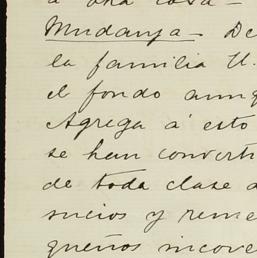 a una casa —
Mudanza — De
la familia U.
el fondo aunq
Agrega á esto
se han converti
de toda clase d
sucios y reme
queños incove